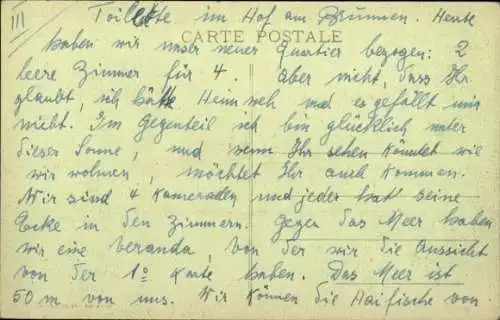 III
Toilette im Hof am Brunnen. Heute
CARTE POSTALE
haben wir unser neuer Quartier bezogen: 2
leere Zimmer für 4. Aber nicht, dass Ihr
glaubt, ich hätte Heimweh und es gefällt mir
nicht. Im Gegenteil ich bin glücklich unter
dieser Sonne, und wenn Ihr sehen könntet wie
wir wohnen, möchtet Ihr auch kommen.
Wir sind 4 Kameraden und jeder hat seine
Ecke in den Zimmern. Gegen das Meer haben
wir eine veranda, von der wir die Aussicht
von der 1° Karte haben. Das Meer ist
50 m von uns. Wir können die Haifische von